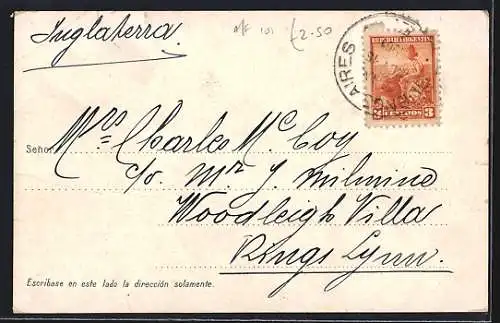 Inglaterra
101 £2-50
AIRES
REPUBLICA ARGENTINA
3 CENTAVOS 3
Señor
Mrs Charles Mc Coy
c/o Mr J. Milmine
Woodleigh Villa
Kings Lynn.
Escríbase en este lado la dirección solamente.